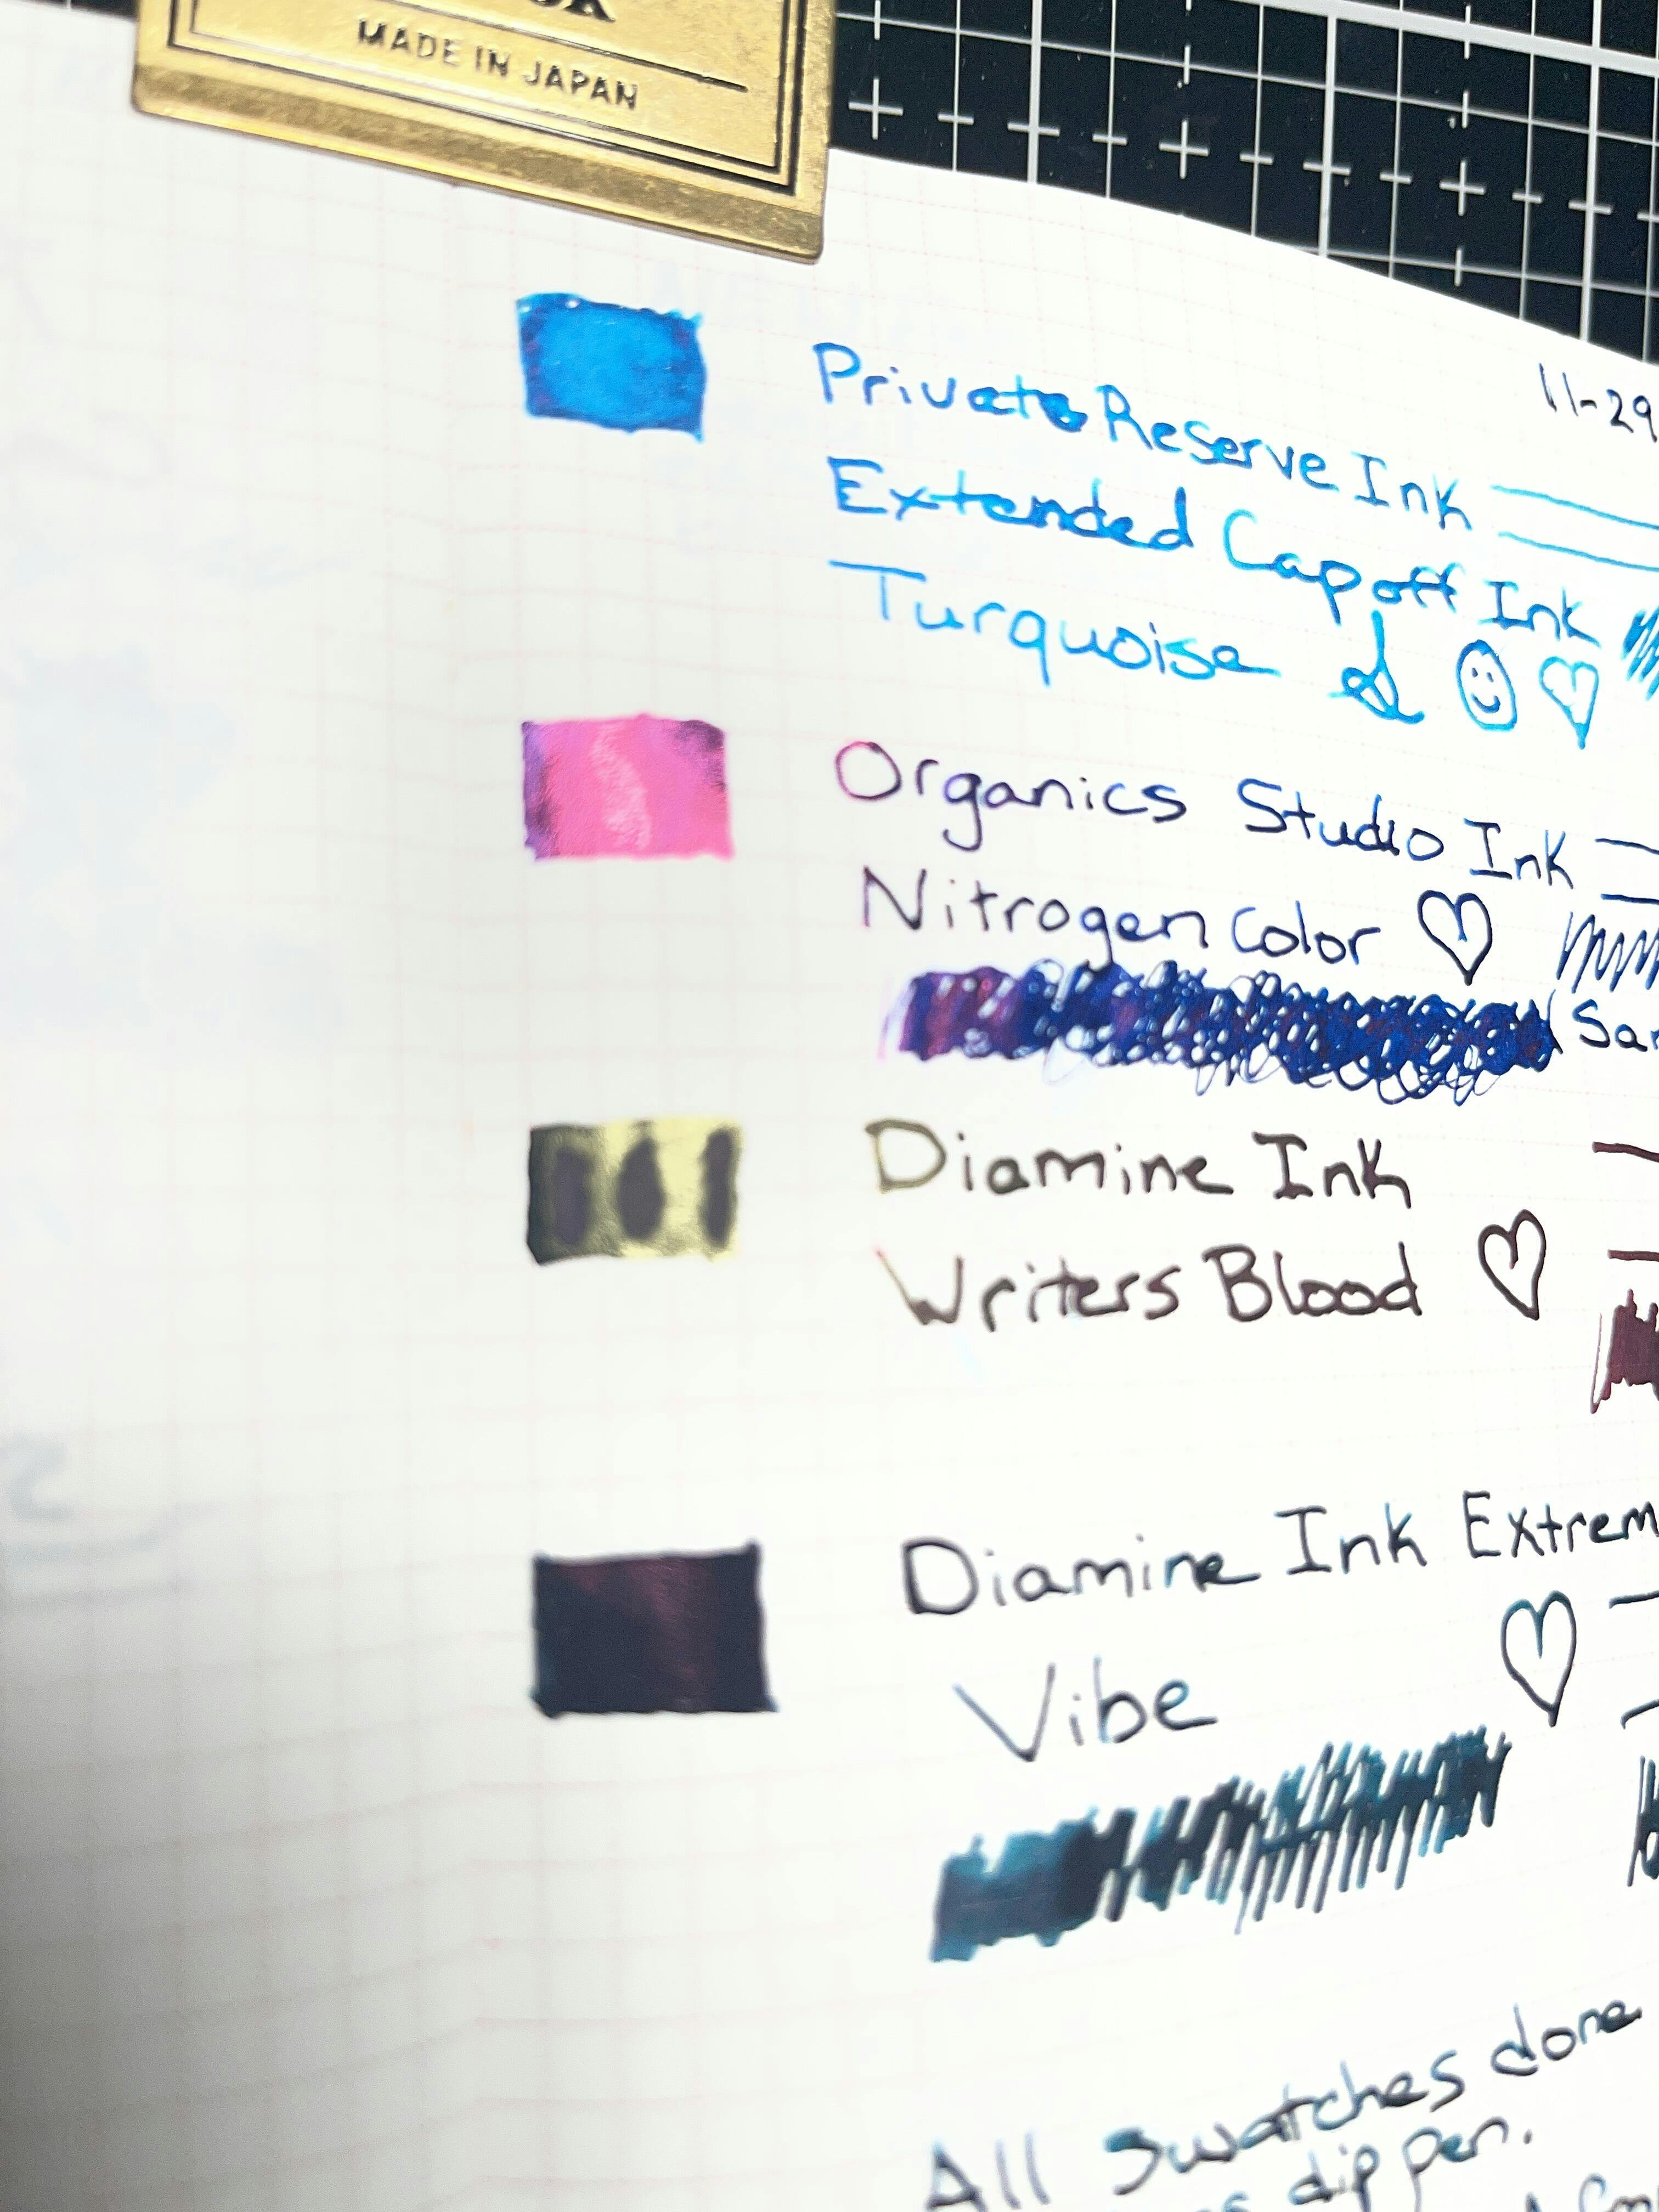 MADE IN JAPAN
11-29
Private Reserve Ink
Extended Cap off Ink
Turquoise
Organics Studio Ink
Nitrogen Color
Diamine Ink
Writers Blood
Diamine Ink Extrem
Vibe
All swatches done
dip pen.